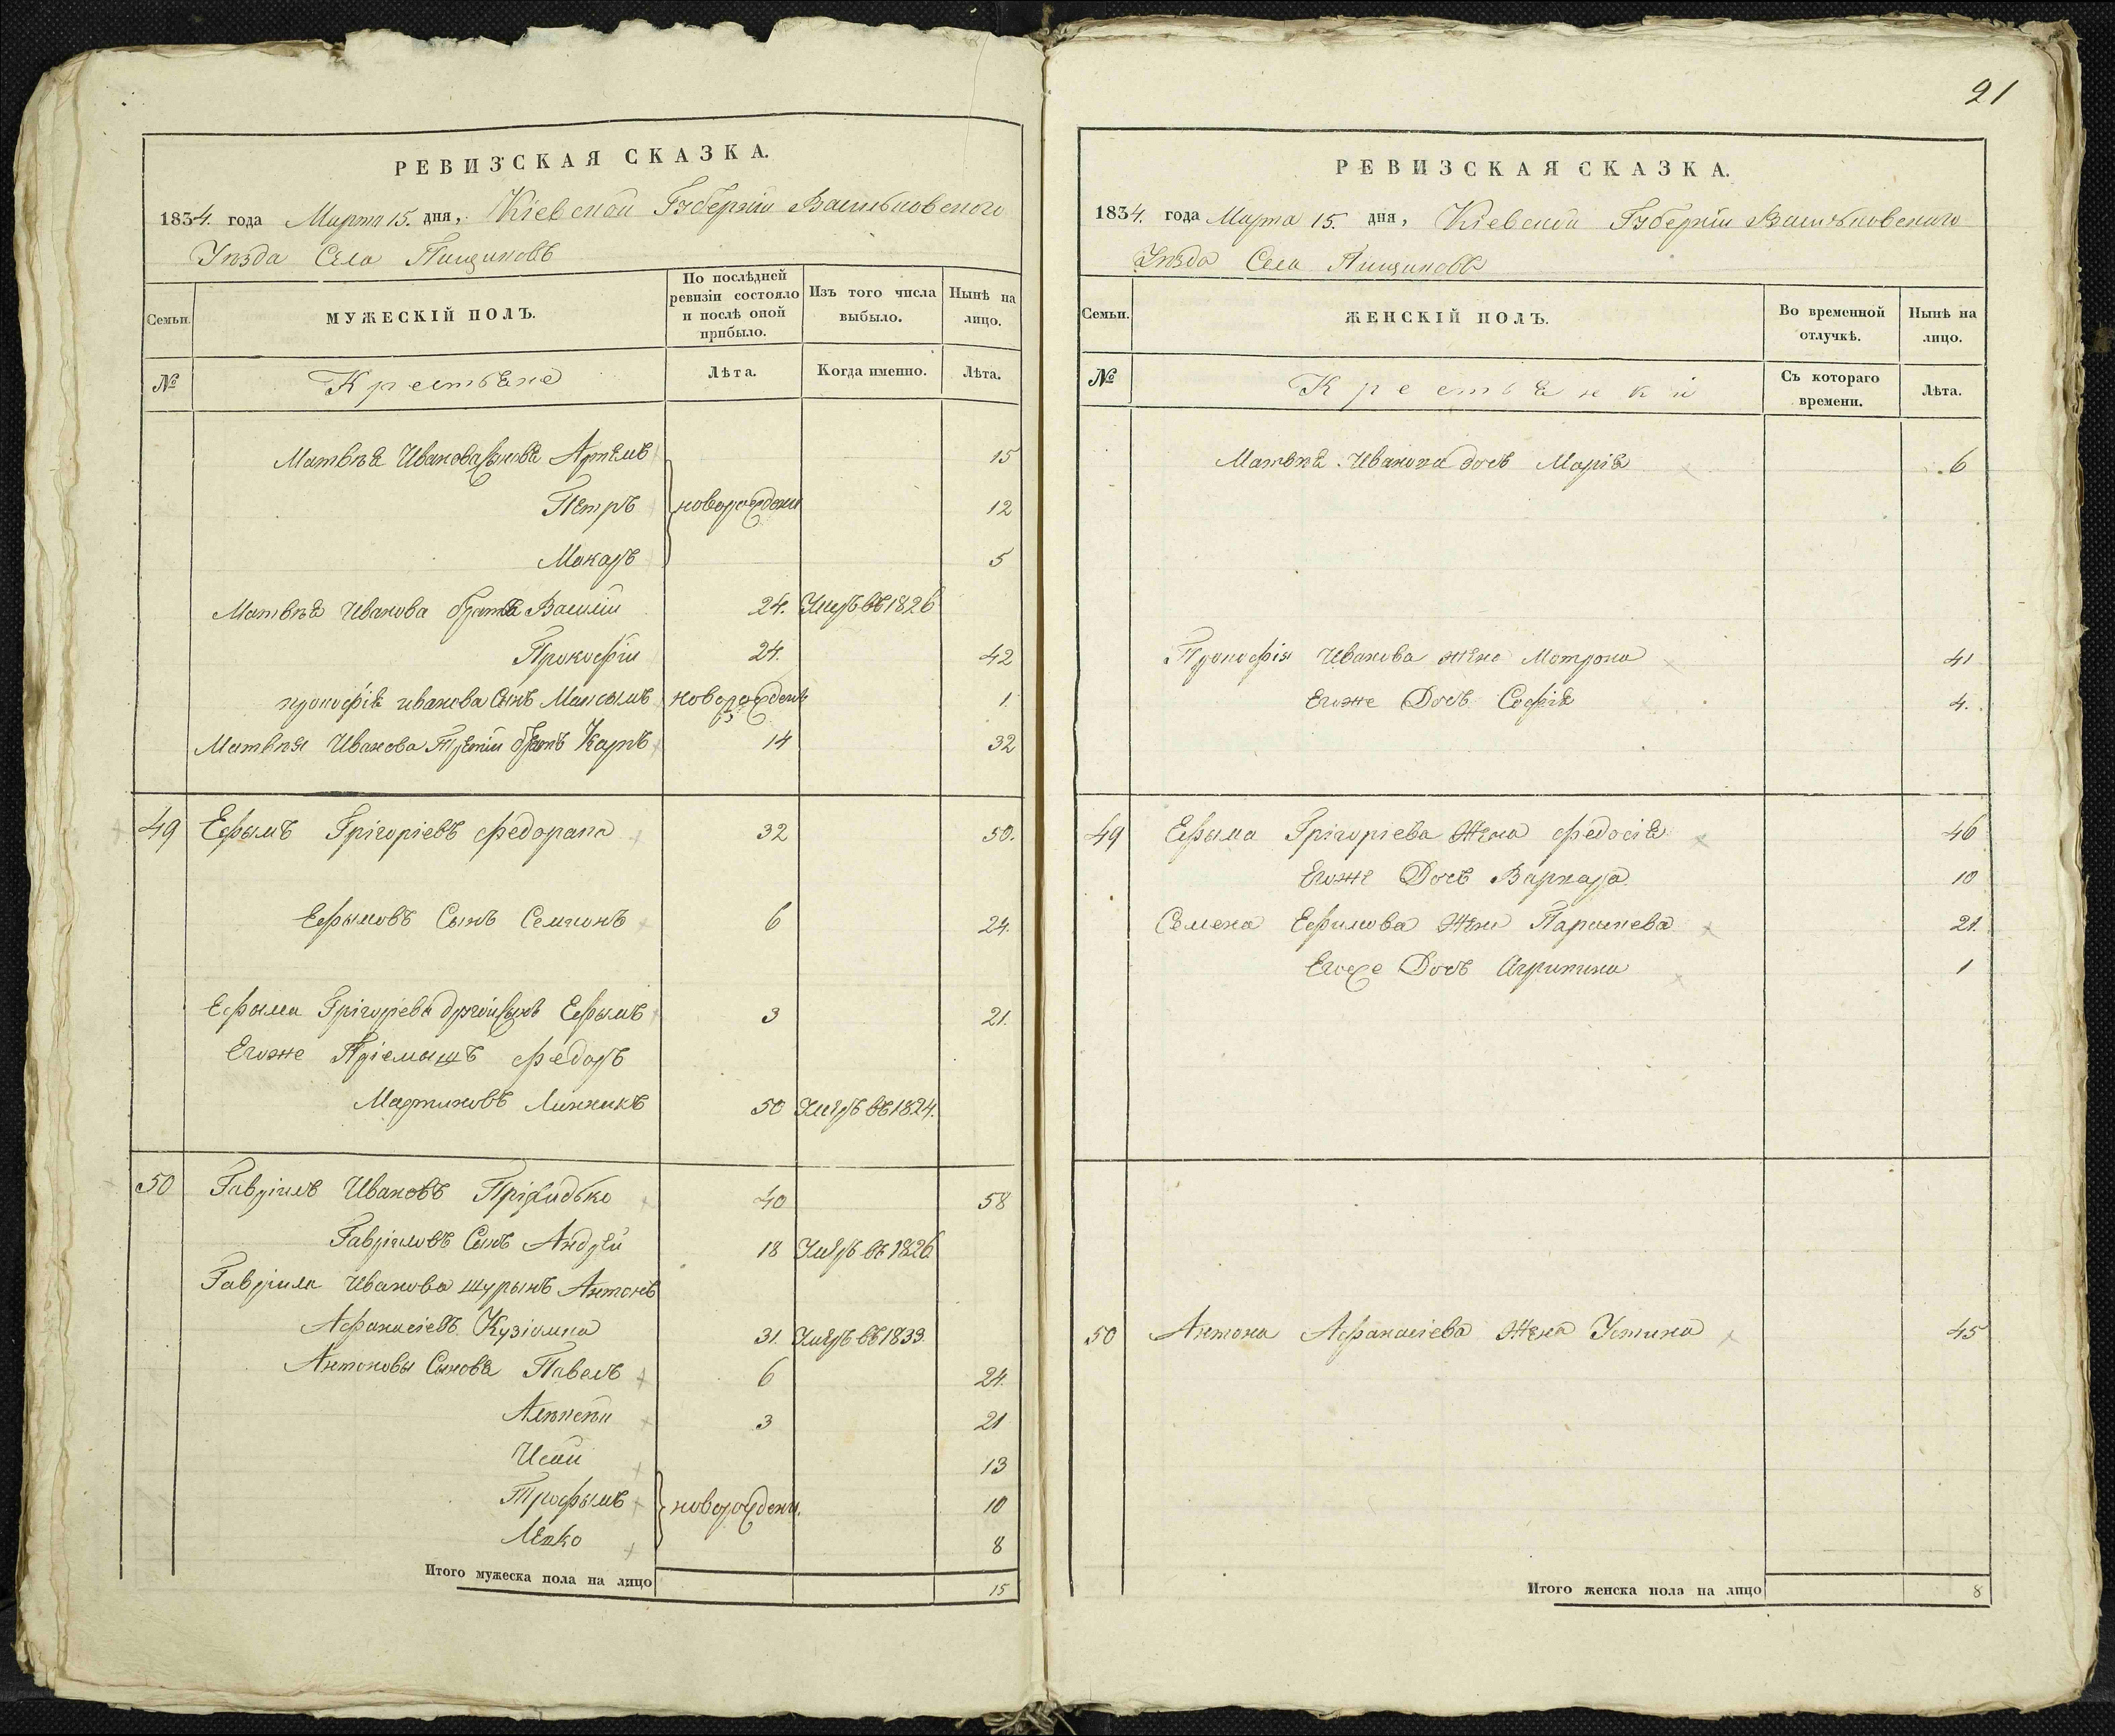 РЕВИЗСКАЯ СКАЗКА.
1834. года Марта 15. дня, Кіевской Губерніи Васильковского
Уезда Села Пищиковъ
Семьи. МУЖЕСКІЙ ПОЛЪ. По послѣдней ревизіи состояло и послѣ оной прибыло. Изъ того числа выбыло. Нынѣ на лицо.
№ Крестьяне Лѣта. Когда именно. Лѣта.
Матвѣя Иванова Сыновья Артемъ 15
Петръ новорождени 12
Макаръ 5
Матвѣя Иванова братья Василій 24. Умеръ въ 1826
Прокофіи 24. 42
прокофія иванова Сынъ Максымъ новорожденъ 1
Матвѣя Иванова Третіи братъ Карпъ 14 32
49 Ефымъ Грігоріевъ 32 50.
Ефымовъ Сынъ Семионъ 6 24.
Ефыма Грігоріева другой сынъ Ефымъ 3 21.
Егоже Пріемышъ федоръ
Мартиновъ Линникъ 50 Умеръ въ 1824.
50 Гавріилъ Ивановъ 40 58
Гавріиловъ Сынъ Андрей 18 Умеръ въ 1826
Гавріила Иванова шурынъ Антонъ
Афанасіевъ 31. Умеръ въ 1833.
Антоновы Сыновья Павелъ 6 24.
Алексѣи 3 21
13
Трофымъ новорождени. 10
8
Итого мужеска пола на лицо 15
21
РЕВИЗСКАЯ СКАЗКА.
1834. года Марта 15. дня, Кіевской Губерніи Васильковского
Уезда Села Пищиковъ
Семьи. ЖЕНСКІЙ ПОЛЪ. Во временной отлучкѣ. Нынѣ на лицо.
№ Крестьянки Съ котораго времени. Лѣта.
Матвѣя Иванова дочь Марія 6
Прокофія Иванова жена Мотрона 41
Егоже Дочь Софія 4.
49 Ефыма Грігоріева Жена федосія 46
Егоже Дочь Варвара 10
Семена Ефимова Жена Парасиева 21.
Егоже Дочь Агрипина 1
50 Антона Афанасіева Жена Устина 45
Итого женска пола на лицо 8